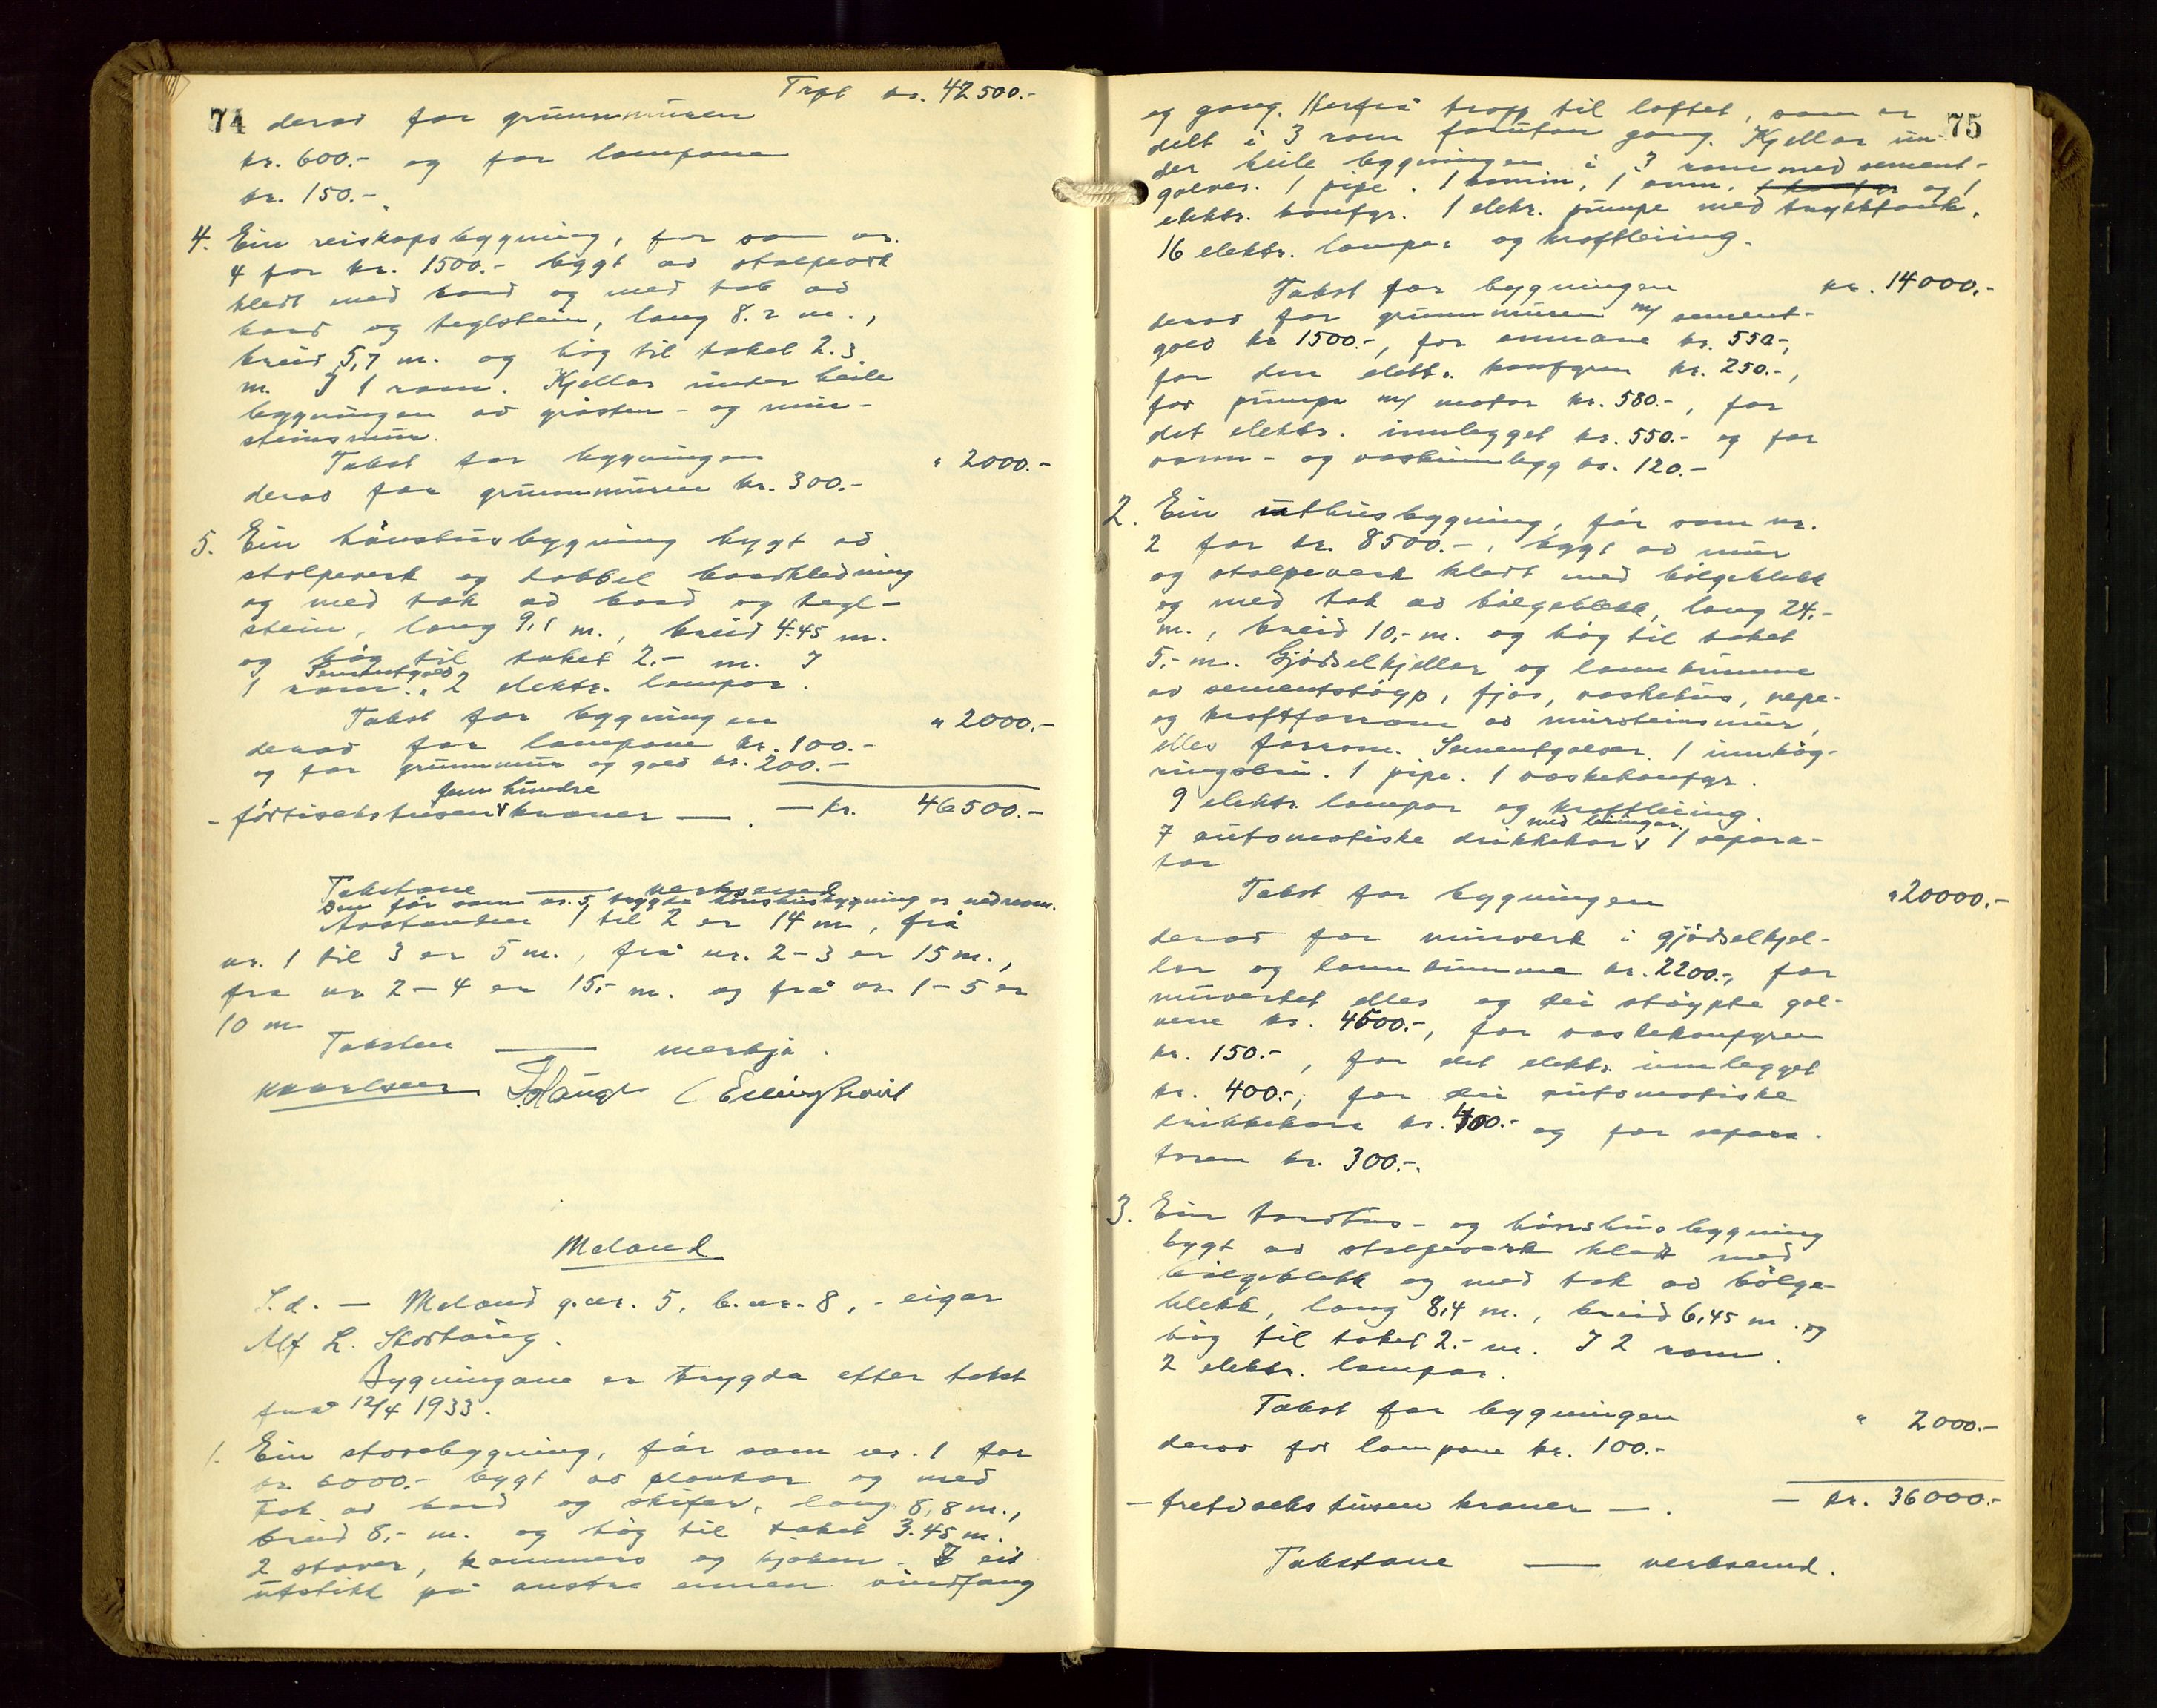 74
Trpt kr. 42500.-
derav for grunnmuren
kr. 600.- og for lampone
kr. 150.-.
4. Ein reiskapsbygning, før som nr.
4 for kr. 1500.- bygt av stolpeverk
kledt med bord og med tak av
bord og teglstein, lang 8.2 m.,
breid 5,7 m. og høg til taket 2.3
m. I 1 rom. Kjellar under heile
bygningen av gråstein- og mur-
steinsmur.
Takst for bygningen " 2000.-
derav for grunnmuren kr. 300.-
5. Ein hönsehusbygning bygt av
stolpeverk og dobbel bordkledning
og med tak av bord og tegl-
stein, lang 9,1 m., breid 4.45 m.
og høg til taket 2.- m. I
1 rom. Sementgolv. 2 elektr. lampor.
Takst for bygningen " 2000.-
derav for lampone kr. 100.-
og for grunnmur og golv kr. 200.-
- førtiseks tusen fem hundre kroner — . — kr. 46500.-
Takstane — verksemd
Den før som nr. 5 trygda hönsehusbygning er nedreven.
Avstanden 1 til 2 er 14 m, frå
nr. 1 til 3 er 5 m., frå nr. 2-3 er 15 m.,
fra nr 2-4 er 15,- m. og frå nr 1-5 er
10 m.
Taksten — merkja.
Elling
Meland
S.d. — Meland g.nr. 5, b.nr. 8, - eigar
Alf L. Storhaug.
Bygningane er trygda etter takst
frå 12/4 1933.
1. Ein stovebygning, før som nr. 1 for
kr. 6000.- bygt av plankar og med
tak av bord og skifer, lang 8,8 m.,
breid 8,- m. og høg til taket 3.45 m.
2 stover, kammers og kjøken. I eit
utstikk på austre ennen vindfang
75
og gang. Herfrå tropp til loftet, som er
delt i 3 rom forutan gang. Kjellar un-
der heile bygningen i 3 rom med sement-
golver. 1 pipe. 1 kamin, 1 omn, og 1
elektr. komfyr. 1 elektr. pumpe med trykktank.
16 elektr. lampor og kraftleiing.
Takst for bygningen kr. 14000.-
derav for grunnmuren m/ sement-
golv kr 1500.-, for omnane kr. 550.-,
for den elektr. komfyren kr. 250.-,
for pumpe m/ motor kr. 580.-, for
det elektr. innlegget kr. 550.- og for
vann- og vaskinnlegg kr. 120.-
2. Ein uthusbygning, før som nr.
2 for kr 8500.-, bygt av mur
og stolpeverk kledt med bølgeblekk
og med tak av bølgeblekk, lang 24,-
m., breid 10,- m. og høg til taket
5,- m. Gjødselkjellar og landkumme
av sementstøyp, fjøs, vaskehus, nepe-
og kraftforrom av mursteinsmur,
elles forrom. Sementgolver. 1 innkøy-
ringsbru. 1 pipe. 1 vaskekomfyr.
9 elektr. lampor og kraftleiing.
7 automatiske drikkekar med leiingar. 1 separa-
tor
Takst for bygningen " 20000.-
derav for murverk i gjødselkjel-
lar og landkumme kr. 2200.-, for
murverket elles og dei støypte gol-
vene kr. 4500.-, for vaskekomfyren
kr. 150.-, for det elektr. innlegget
kr. 400.-, for dei automatiske
drikkekara kr. 400.- og for separa-
toren kr. 300.-.
3. Ein torvhus- og hönsehusbygning
bygt av stolpeverk kledt med
bølgeblekk og med tak av bølge-
blekk, lang 8,4 m., breid 6,45 m. og
høg til taket 2.- m. I 2 rom.
2 elektr. lampor.
Takst for bygningen " 2000.-
derav for lampone kr. 100.-
- trettiseks tusen kroner — . — kr. 36000.-
Takstane — verksemd.